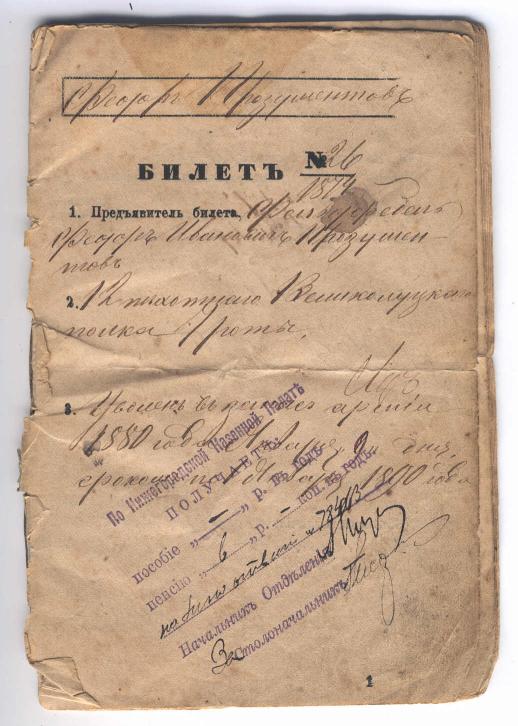 Федоръ Прозументовъ
БИЛЕТЪ № 26
1874
1. Предъявитель билета, Фельдфебель
Федоръ Ивановичъ Прозумен-
товъ
2. 12 пѣхотнаго Великолуцкаго
полка роты,
3. Уволенъ въ запасъ арміи
1880 года Января 9 дня,
срокомъ по Января 1890 года
По Нижегородской Казенной Палатѣ
ПОЛУЧАЕТЪ:
пособіе „ — „ р. въ годъ
пенсію „ 6 „ р. — коп. въ годъ.
Начальникъ Отдѣленія
Застолоначальникъ
1